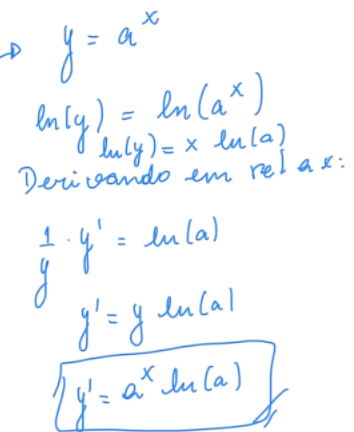 → y = a^x
ln(y) = ln(a^x)
ln(y) = x ln(a)
Derivando em rel a x:
1/y · y' = ln(a)
y' = y ln(a)
y' = a^x ln(a)